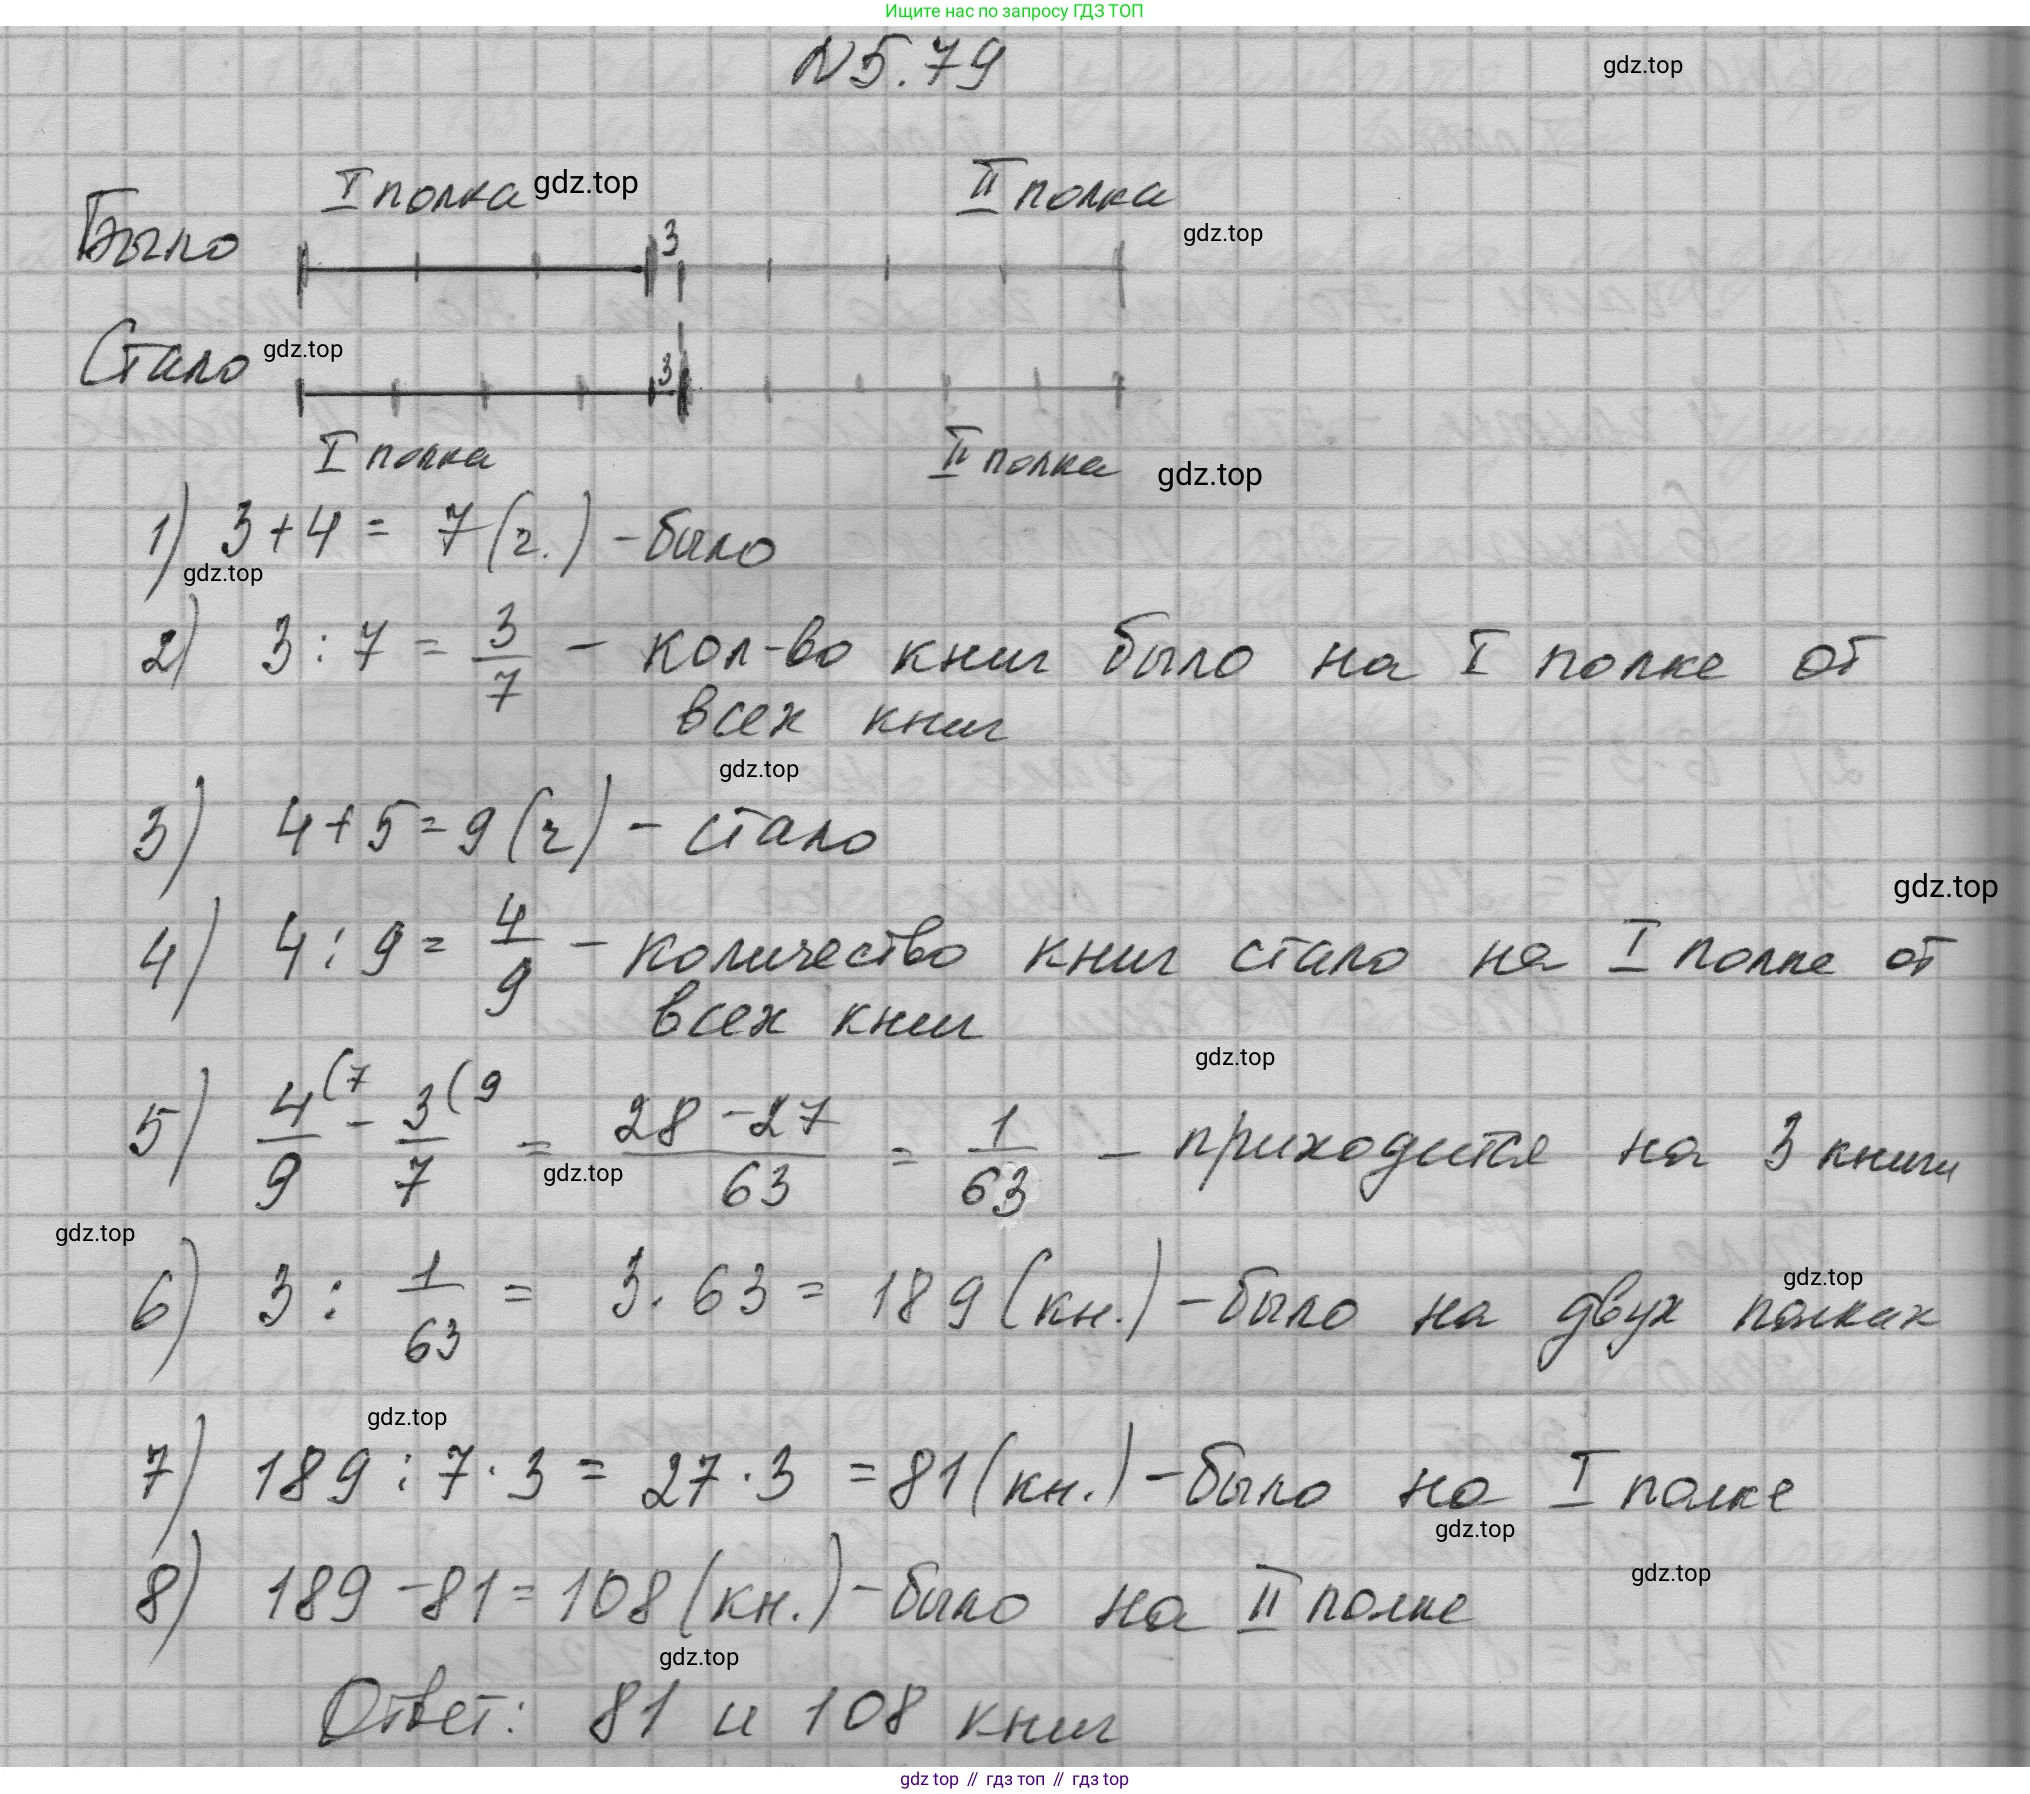 Ищите нас по запросу ГДЗ ТОП
N 5.79
gdz.top
I полка gdz.top II полка
gdz.top
Было 3
Стало gdz.top 3
I полка II полка gdz.top
1) 3 + 4 = 7 (ч.) - было
gdz.top
2) 3 : 7 = 3/7 - кол-во книг было на I полке от
всех книг
gdz.top
3) 4 + 5 = 9 (ч) - стало
gdz.top
4) 4 : 9 = 4/9 - количество книг стало на I полке от
всех книг
gdz.top
5) 4/9 (7 - 3/7 (9 = 28 - 27/63 = 1/63 - приходится на 3 книги
gdz.top
gdz.top
6) 3 : 1/63 = 3 . 63 = 189 (кн.) - было на двух полках
gdz.top
gdz.top
7) 189 : 7 · 3 = 27 · 3 = 81 (кн.) - было на I полке
gdz.top
8) 189 - 81 = 108 (кн.) - было на II полке
gdz.top
gdz.top
Ответ: 81 и 108 книг
gdz top // гдз топ // гдз top